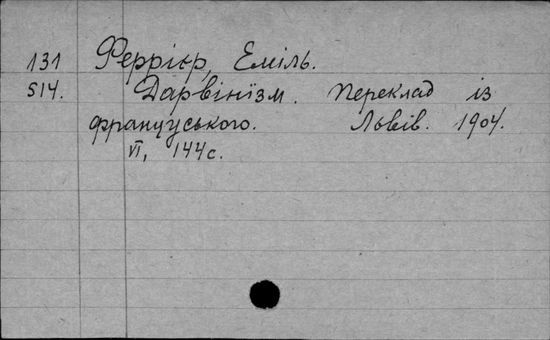 131 Феррієр, Еміль.
514. Дарвінїзм. Переклад із
француського. Львів. 1904.
VI, 144с.